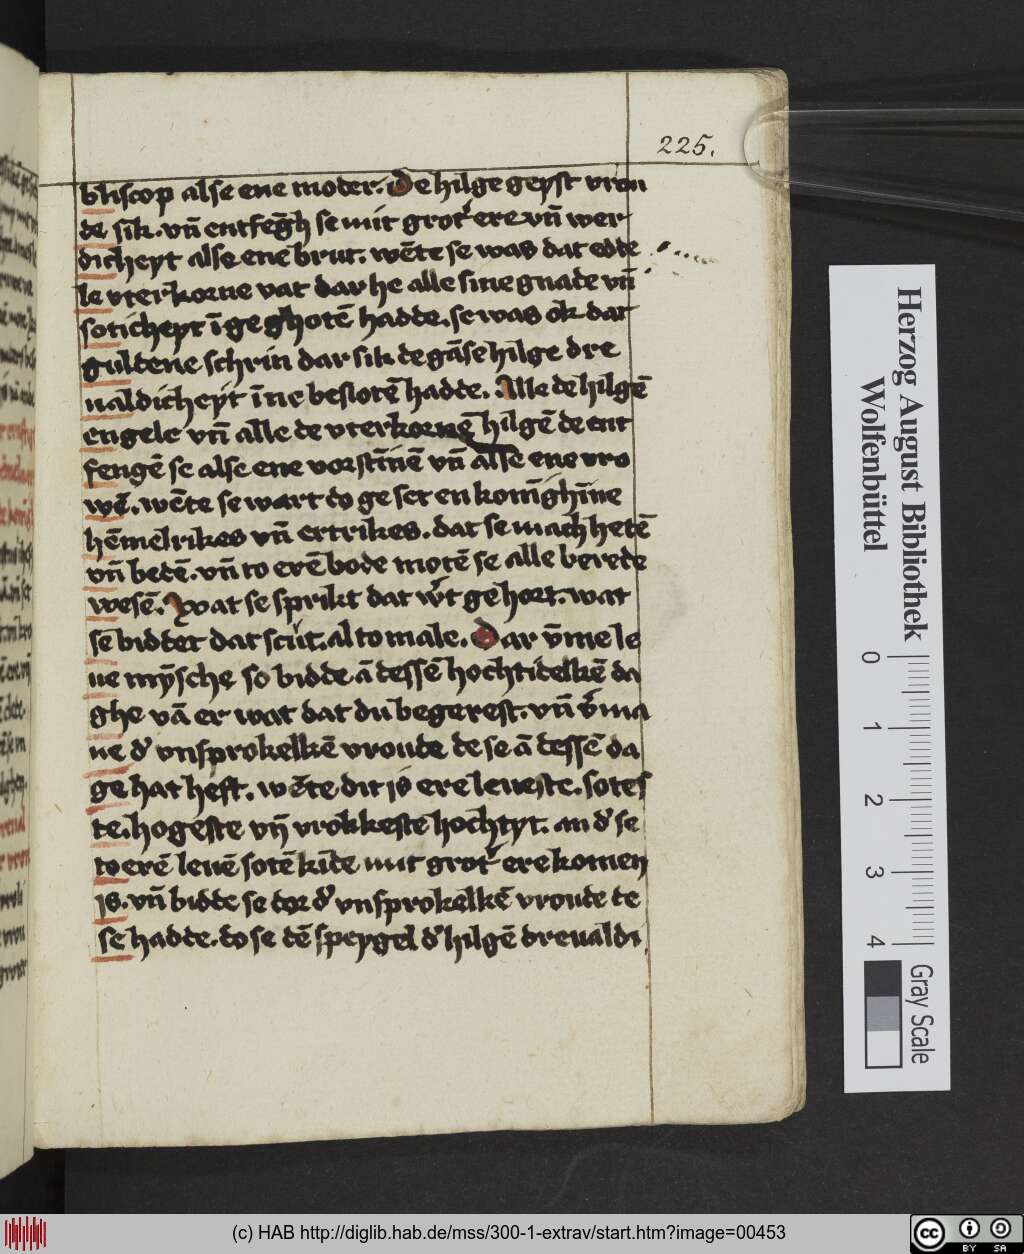 225.
bliscop alse ene moder. De hilge geyst vrou
de sik. vn̄ entfeg̅h se mit grot' ere vn̄ wer
dicheyt alse ene brut. wēte se was dat edde
le vterkorne vat dar he alle sine gnade vn̄
soticheyt ī ge ghotē hadde. se was ok dat
guldene schrin dar sik de gāse hilge dre
ualdicheyt īne beslotē hadde. Alle de hilgē
engele vn̄ alle de vterkornē hilgē de ent
fengē se alse ene vorstīnē vn̄ alse ene vro
wē. wēte se wart to ge set en konīghīne
hēmelrikes vn̄ ertrikes. dat se mach hetē
vn̄ bedē. vn̄ to erē bode motē se alle berede
wesē. wat se sprikt dat w't gehort. wat
se biddet dat scut. al to male. Dar v̄me le
ue mȳsche so bidde ā dessē hochtidelkē da
ghe vā er wat dat du begerest. vn̄ v'ma
ne d' vnsprokelkē vroude de se ā dessē da
ge hat heft. wēte dit is ere leueste. sotes
te. hogeste vn̄ vrokkeste hochtyt. an d' se
to erē leuē sotē kīde mit grot' ere komen
is. vn̄ bidde se dor d' vnsprokelkē vroude de
se hadde. do se dē speygel d' hilgē dreualdi
Herzog August Bibliothek
Wolfenbüttel
0
1
2
3
4
Gray Scale
(c) HAB http://diglib.hab.de/mss/300-1-extrav/start.htm?image=00453
cc
BY SA